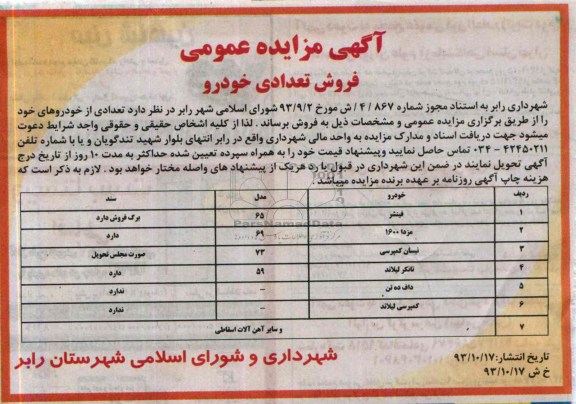 آگهی مزایده عمومی
فروش تعدادی خودرو
شهرداری رابر به استناد مجوز شماره ۸۶۷ / ۴ / ش مورخ ۹۳/۹/۲ شورای اسلامی شهر رابر در نظر دارد تعدادی از خودروهای خود
را از طریق برگزاری مزایده عمومی و مشخصات ذیل به فروش برساند . لذا از کلیه اشخاص حقیقی و حقوقی واجد شرایط دعوت
میشود جهت دریافت اسناد و مدارک مزایده به واحد مالی شهرداری واقع در رابر انتهای بلوار شهید تندگویان و یا با شماره تلفن
۴۲۴۵۰۲۱۱ - ۰۳۴ تماس حاصل نمایید وپیشنهاد قیمت خود را به همراه سپرده تعیین شده حداکثر به مدت ۱۰ روز از تاریخ درج
آگهی تحویل نمایند در ضمن این شهرداری در قبول یا رد هریک از پیشنهاد های واصله مختار خواهد بود . لازم به ذکر است که
هزینه چاپ آگهی روزنامه بر عهده برنده مزایده میباشد .
ردیف خودرو مدل سند
۱ فینشر ۶۵ برگ فروش دارد
۲ مزدا ۱۶۰۰ ۶۹ دارد
۳ نیسان کمپرسی ۷۳ صورت مجلس تحویل
۴ تانکر لیلاند ۵۹ دارد
۵ داف ده تن – ندارد
۶ کمپرسی لیلاند – ندارد
۷ و سایر آهن آلات اسقاطی
تاریخ انتشار: ۹۳/۱۰/۱۷
خ ش ۹۳/۱۰/۱۷
شهرداری و شورای اسلامی شهرستان رابر
ParsNamadData